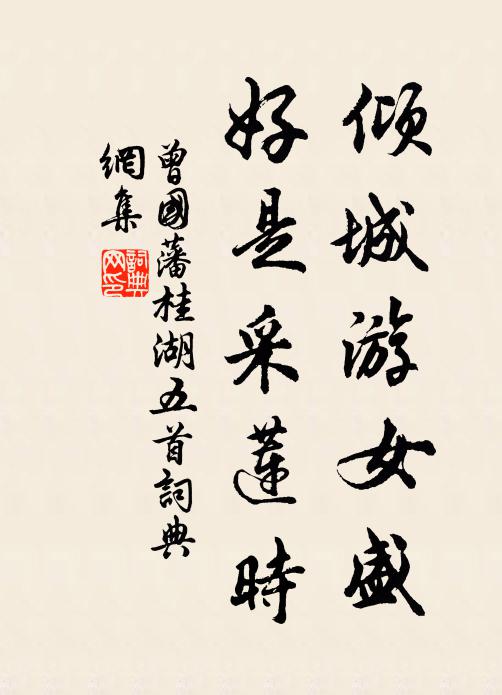 倾城游女盛
好是采蓮時
曾國藩桂湖五首詞典
網集
詞典网印